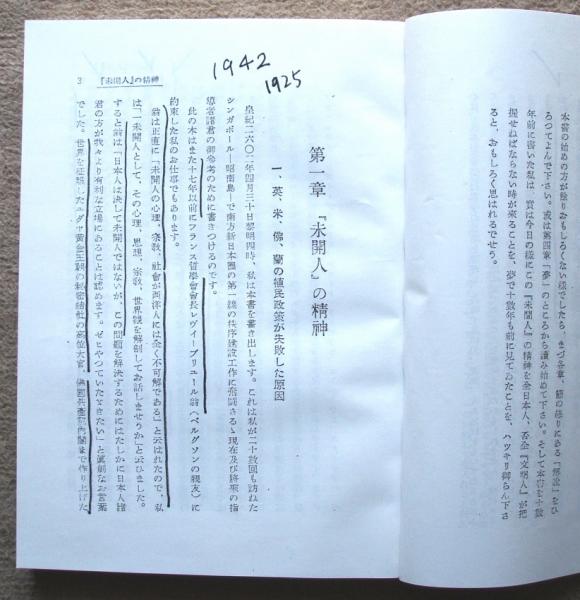 本書の始めの方が餘りおもしろくない樣でしたら、まづ各章、節の終りにある『解說』をひ
ろつてよんで下さい。或は第四章「夢」のところから讀み始めて下さい。そして本書を十數
年前に書いた私は、實は今日の樣にこの『未開人』の精神を全日本人、否全『文明人』が把
握せねばならない時が來ることを、夢で十數年も前に見てゐたことを、ハツキリ御らん下さ
ると、おもしろく思はれるでせう。
1942
1925
第一章 『未開人』の精神
一、英、米、佛、蘭の植民政策が失敗した原因
皇紀二六〇二年四月三十日黎明四時、私は本書を書き出します。これは私が二十數回も訪ねた
シンガポール―昭南島―で南方新日本圈の第一線の秩序建設工作に奮鬪さるゝ現在及び將來の指
導者諸君の御參考のために書きつけるのです。
此の本はまた十七年以前にフランス哲學會會長レヴィーブリュール翁(ベルグソンの親友)に
約束した私のお仕事でもあります。
翁は正直に「未開人の心理、宗敎、社會が西洋人には全く不可解である」と云はれたので、私
は、「一未開人として、その心理、思想、宗敎、世界觀を解剖してお話しませうか」と云ひました。
すると翁は「日本人は決して未開人ではないが、この問題を解決するためにはたしかに日本人諸
君の方が我々より有利な立場にあることは認めます。ぜひやつていたゞきたい」と眞劍なお言葉
でした。世界を征服したユダヤ黃金王朝の秘密結社の高位大官、佛國共產黨內閣まで作り上げた
3 『未開人』の精神